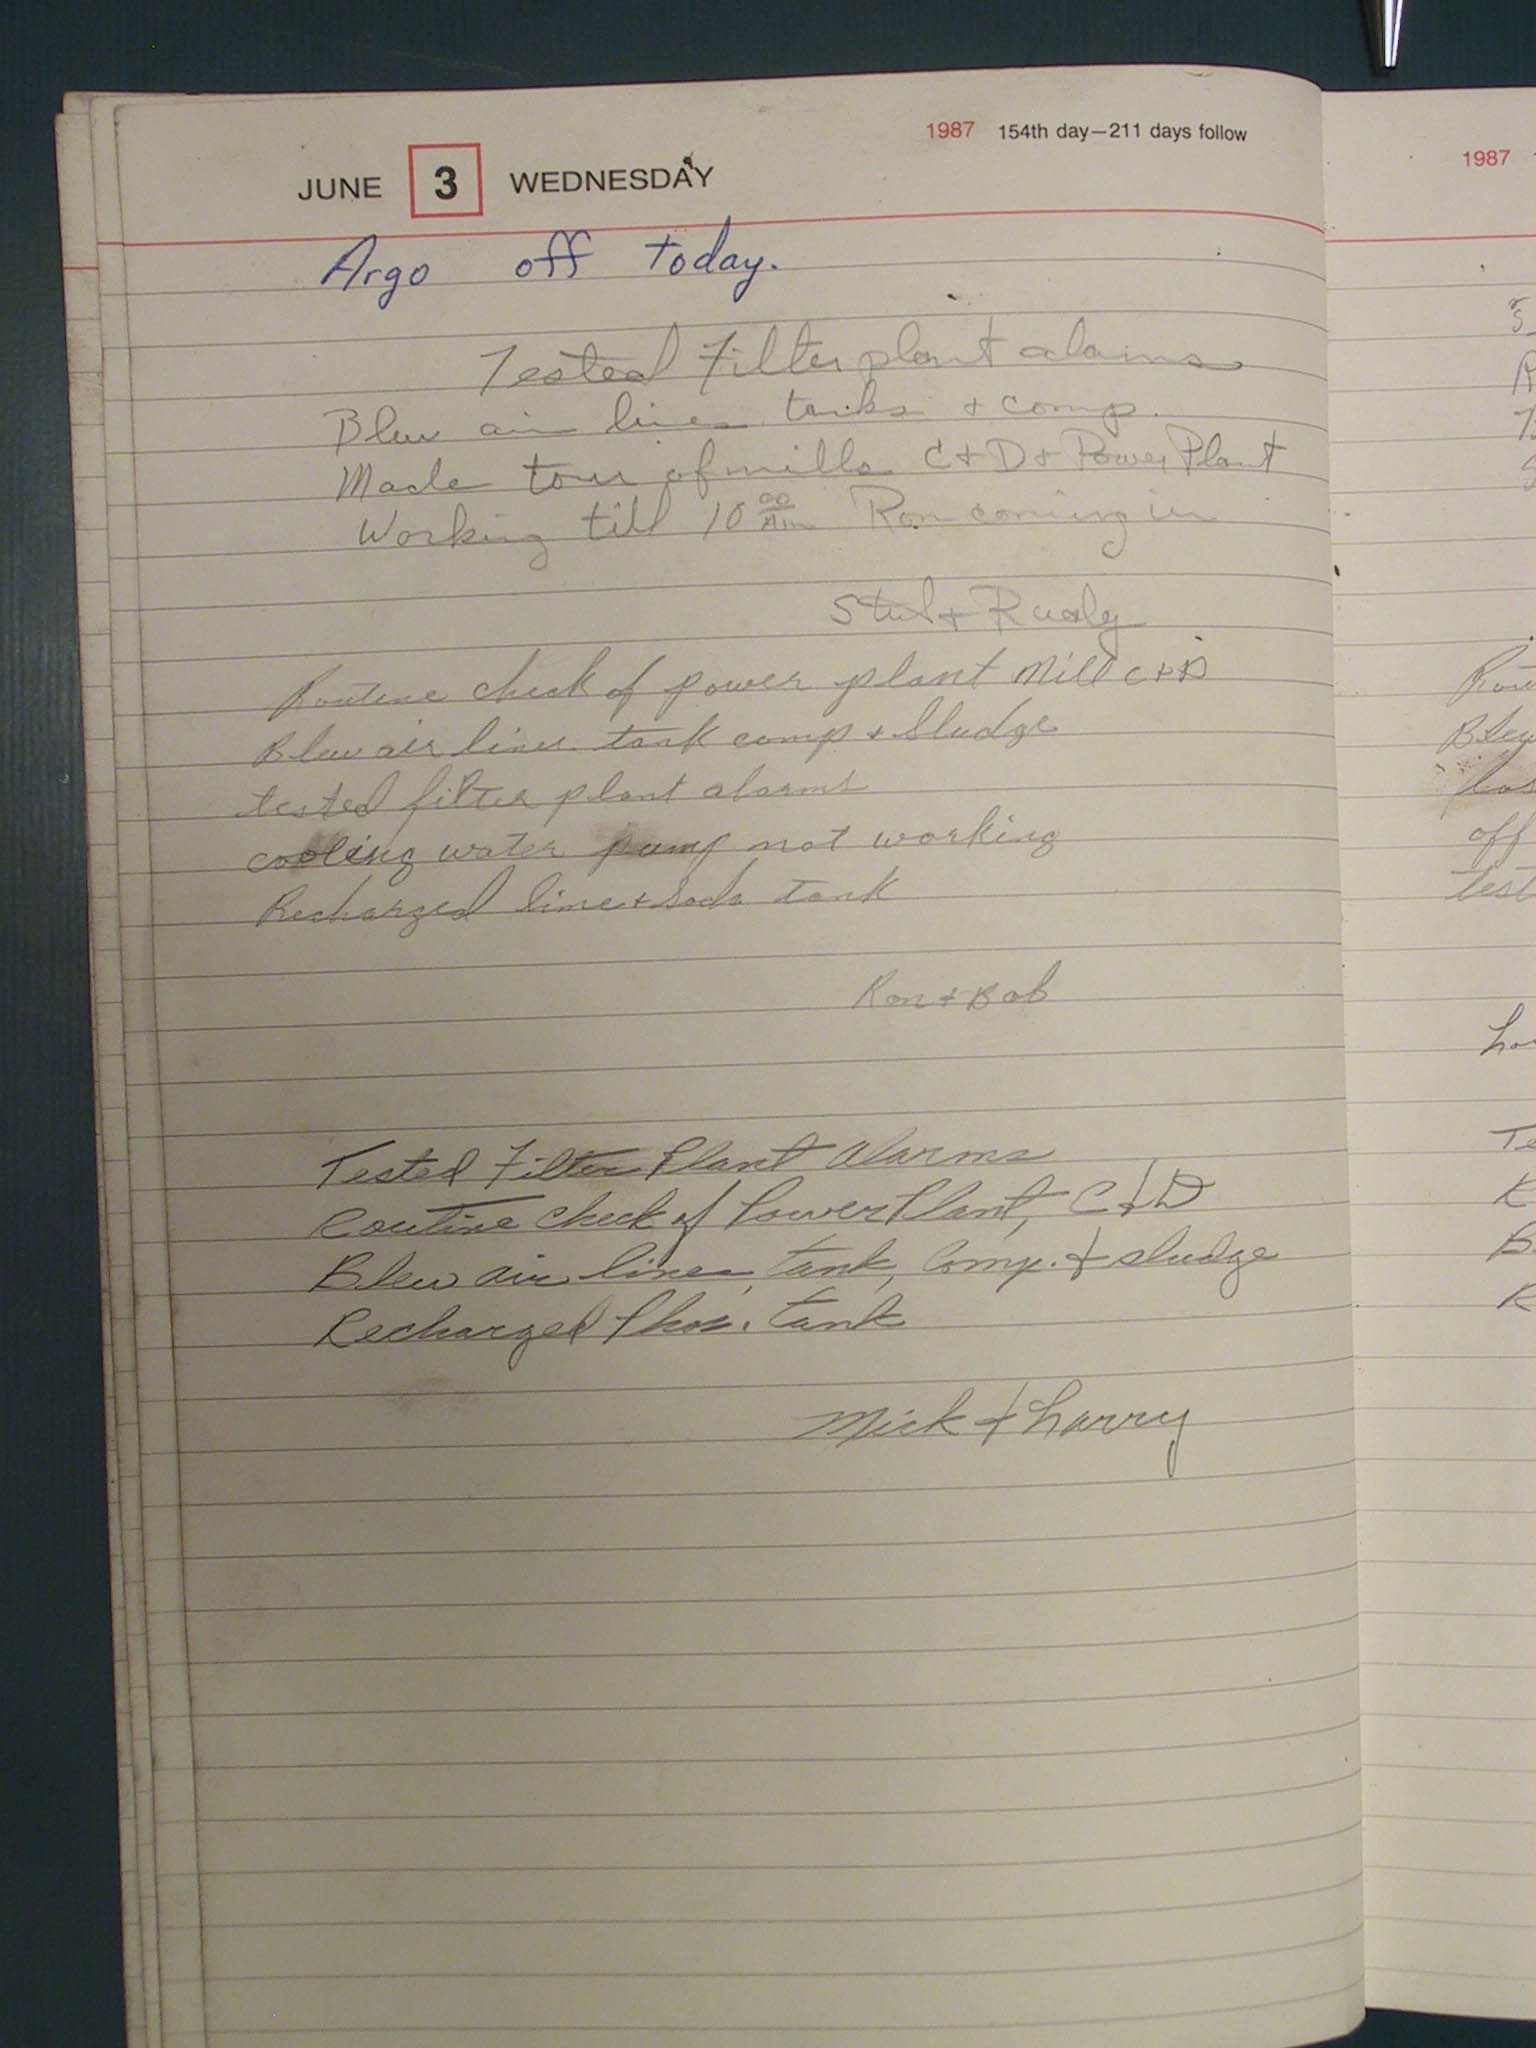 1987 154th day—211 days follow
JUNE 3 WEDNESDAY
Argo off today.
Tested Filter plant alarms
Blew air lines tanks + comp.
Made tour of mills C+D+ Power Plant
Working till 10 00 Ron coming in
+ Rudy
Routine check of power plant Mill C+D
Blew air lines tank comp + Sludge
tested filter plant alarms
cooling water pump not working
Recharged lime + soda tank
Ron + Bob
Tested Filter Plant Alarms
Routine Check of Power Plant, C+D
Blew air lines, tank, Comp. + sludge
Recharged Phos. tank
Mick + Larry
1987
off
test